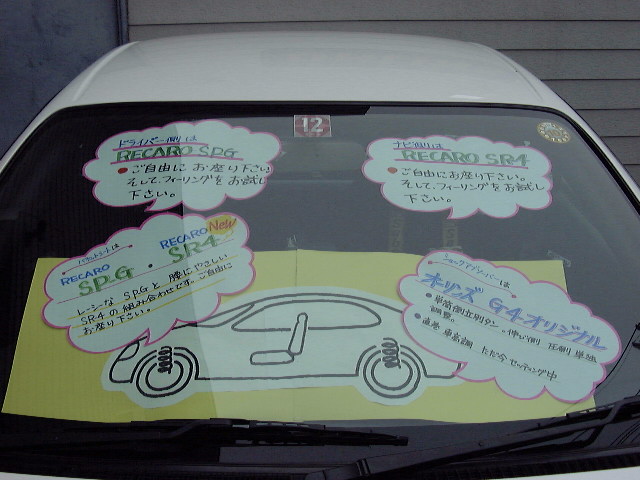 12
ドライバー側は
RECARO SPG
●ご自由に お座り下さい。
そして、フィーリングをお試し
下さい。
ナビ側は
RECARO SR4
●ご自由にお座り下さい。
そして、フィーリングをお試し
下さい。
RECARO
SPG
・
RECARO
SR4
New
レーシーな SPGと 腰にやさしい
SR4の組み合わせです。ご自由に
お座り下さい。
ショックアブソーバーは
G4オリジナル
調整。
ただ今 セッティング中